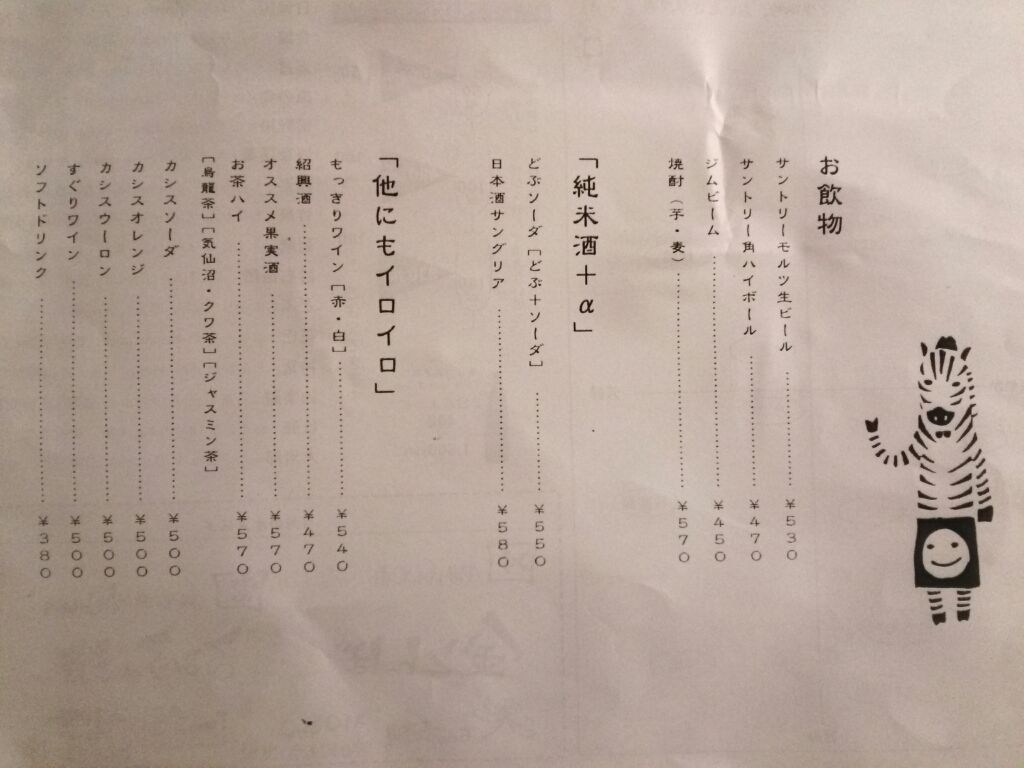 お飲物
サントリーモルツ生ビール ¥530
サントリー角ハイボール ¥470
ジムビーム ¥450
焼酎（芋・麦） ¥570
「純米酒＋α」
どぶソーダ［どぶ＋ソーダ］ ¥550
日本酒サングリア ¥580
「他にもイロイロ」
もっきりワイン［赤・白］ ¥540
紹興酒 ¥470
オススメ果実酒 ¥570
お茶ハイ ¥570
［烏龍茶］［気仙沼・クワ茶］［ジャスミン茶］
カシスソーダ ¥500
カシスオレンジ ¥500
カシスウーロン ¥500
すぐりワイン ¥500
ソフトドリンク ¥380